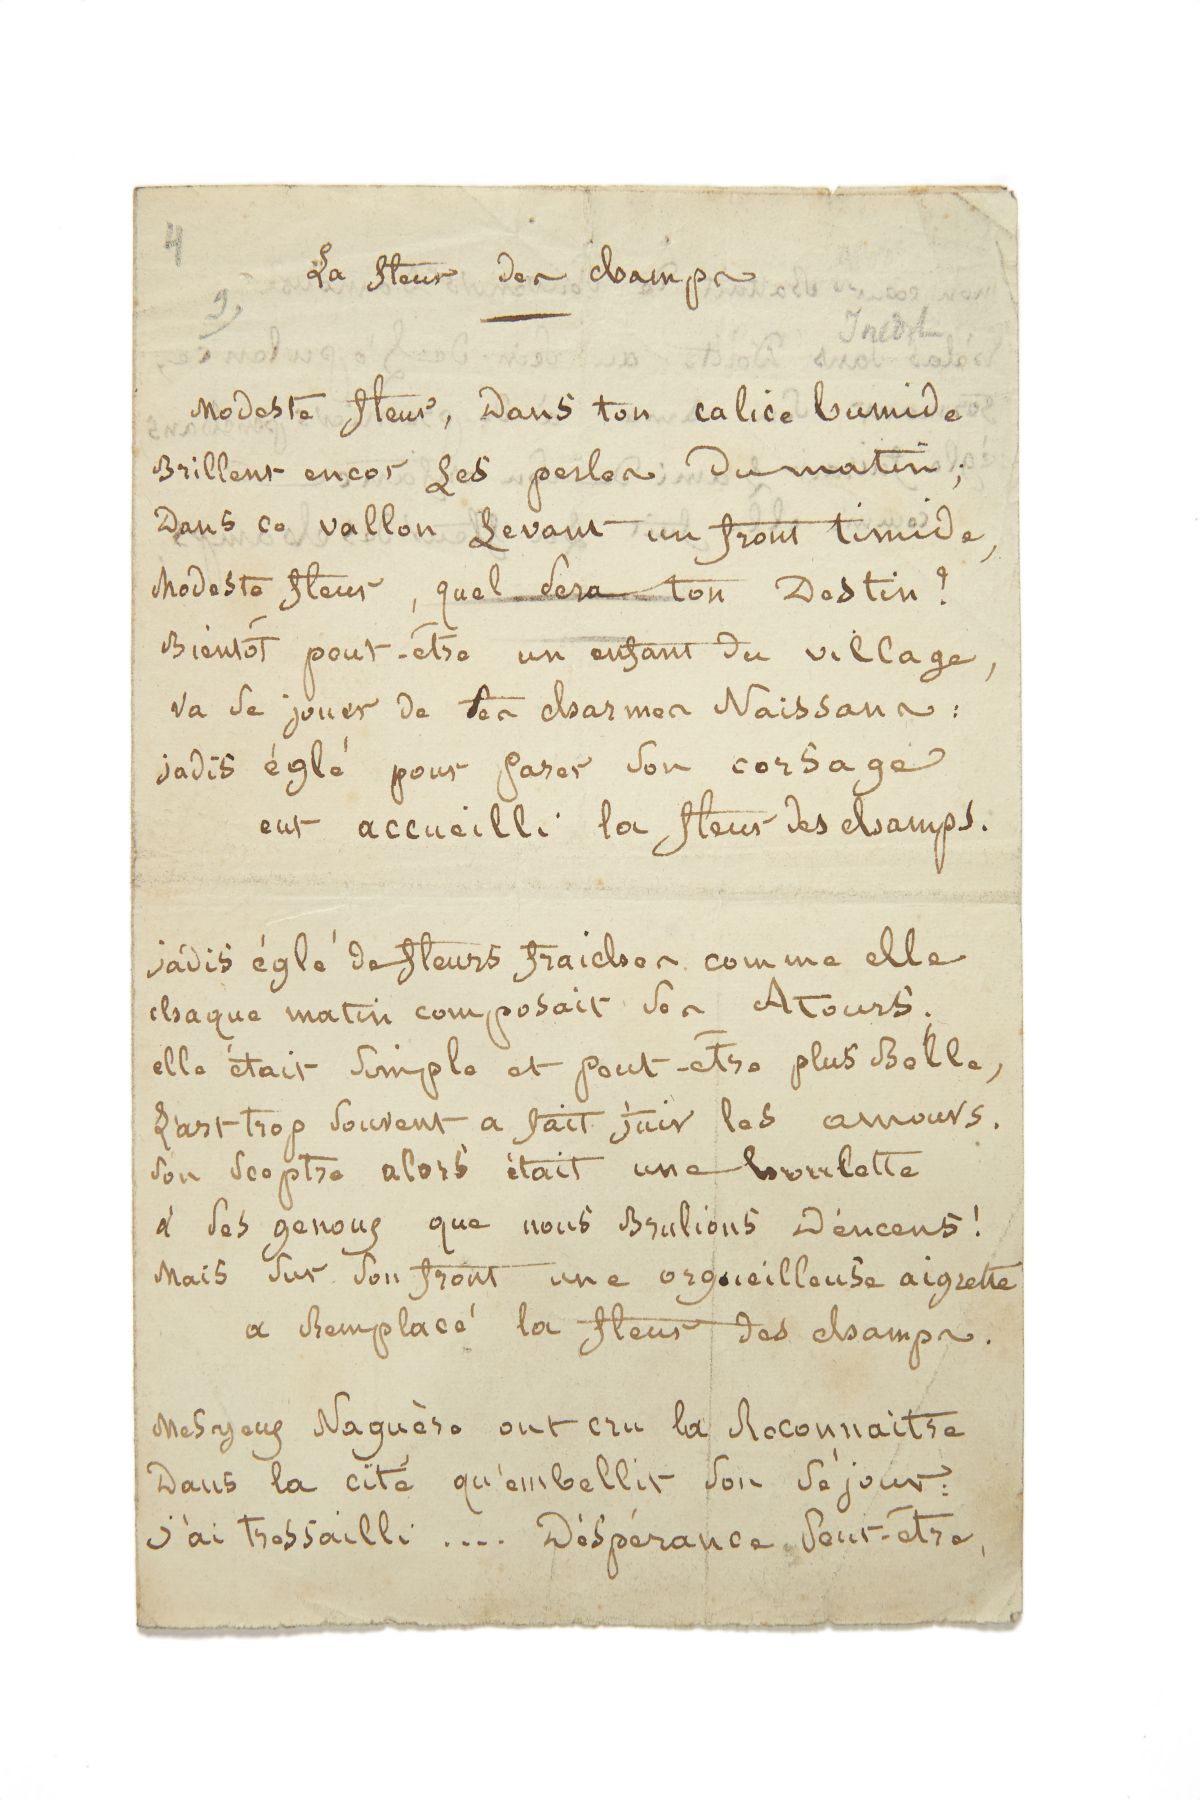 4
La fleur des champs
9,
Inédit
Modeste fleur, Dans ton calice humide
Brillent encor Les perles Du matin;
Dans ce vallon Levant un front timide,
Modeste fleur, quel sera ton Destin?
Bientôt peut-être un enfant du village,
va se jouer de tes charmes Naissans:
jadis églé pour Parer son corsage
eut accueilli la fleur des champs.
jadis églé de fleurs fraiches comme elle
chaque matin composait ses Atours.
elle était simple et peut-être plus Belle,
L'art trop souvent a fait fuir les amours.
son sceptre alors était une houlette
à ses genoux que nous Brulions D'encens!
Mais sur son front une orgueilleuse aigrette
a Remplacé la fleur des champs.
Mes yeux Naguère ont cru la Reconnaitre
Dans la cité qu'embellit son séjour:
j'ai tressailli .... D'éspérance Peut-être,